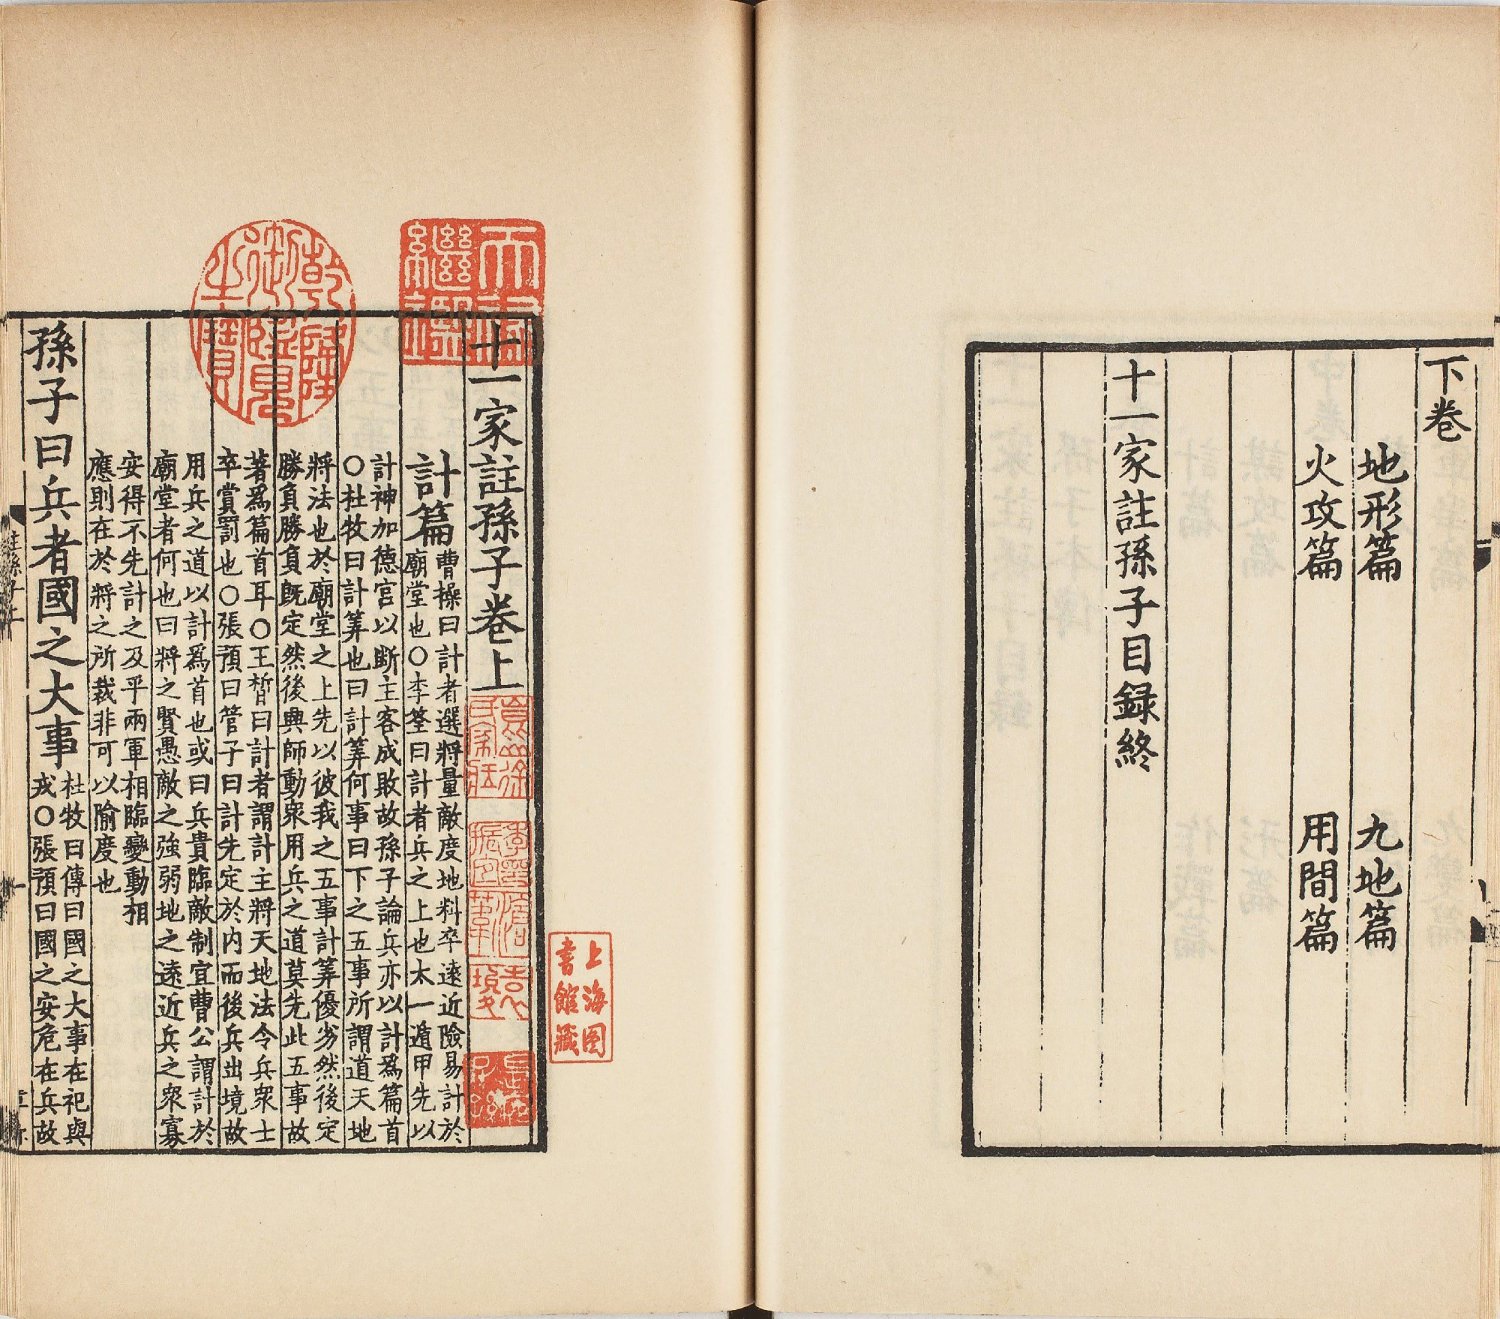 下卷
地形篇　九地篇
火攻篇　用間篇
十一家註孫子目録終
十一家註孫子卷上
計篇
曹操曰計者選將量敵度地料卒遠近險易計於
廟堂也〇李筌曰計者兵之上也太一遁甲先以
計神加德宮以断主客成敗故孫子論兵亦以計爲篇首
〇杜牧曰計筭也曰計筭何事曰下之五事所謂道天地
將法也於廟堂之上先以彼我之五事計筭優劣然後定
勝負勝負既定然後興師動衆用兵之道莫先此五事故
著爲篇首耳〇王晳曰計者謂計主將天地法令兵衆士
卒賞罰也〇張預曰管子曰計先定於內而後兵出境故
用兵之道以計爲首也或曰兵貴臨敵制宜曹公謂計於
廟堂者何也曰將之賢愚敵之強弱地之遠近兵之衆寡
安得不先計之及乎兩軍相臨變動相
應則在於將之所裁非可以隃度也
孫子曰兵者國之大事
杜牧曰傳曰國之大事在祀與
戎〇張預曰國之安危在兵故
天祿繼鑑
乾隆御覽之寶
上海图
書館藏